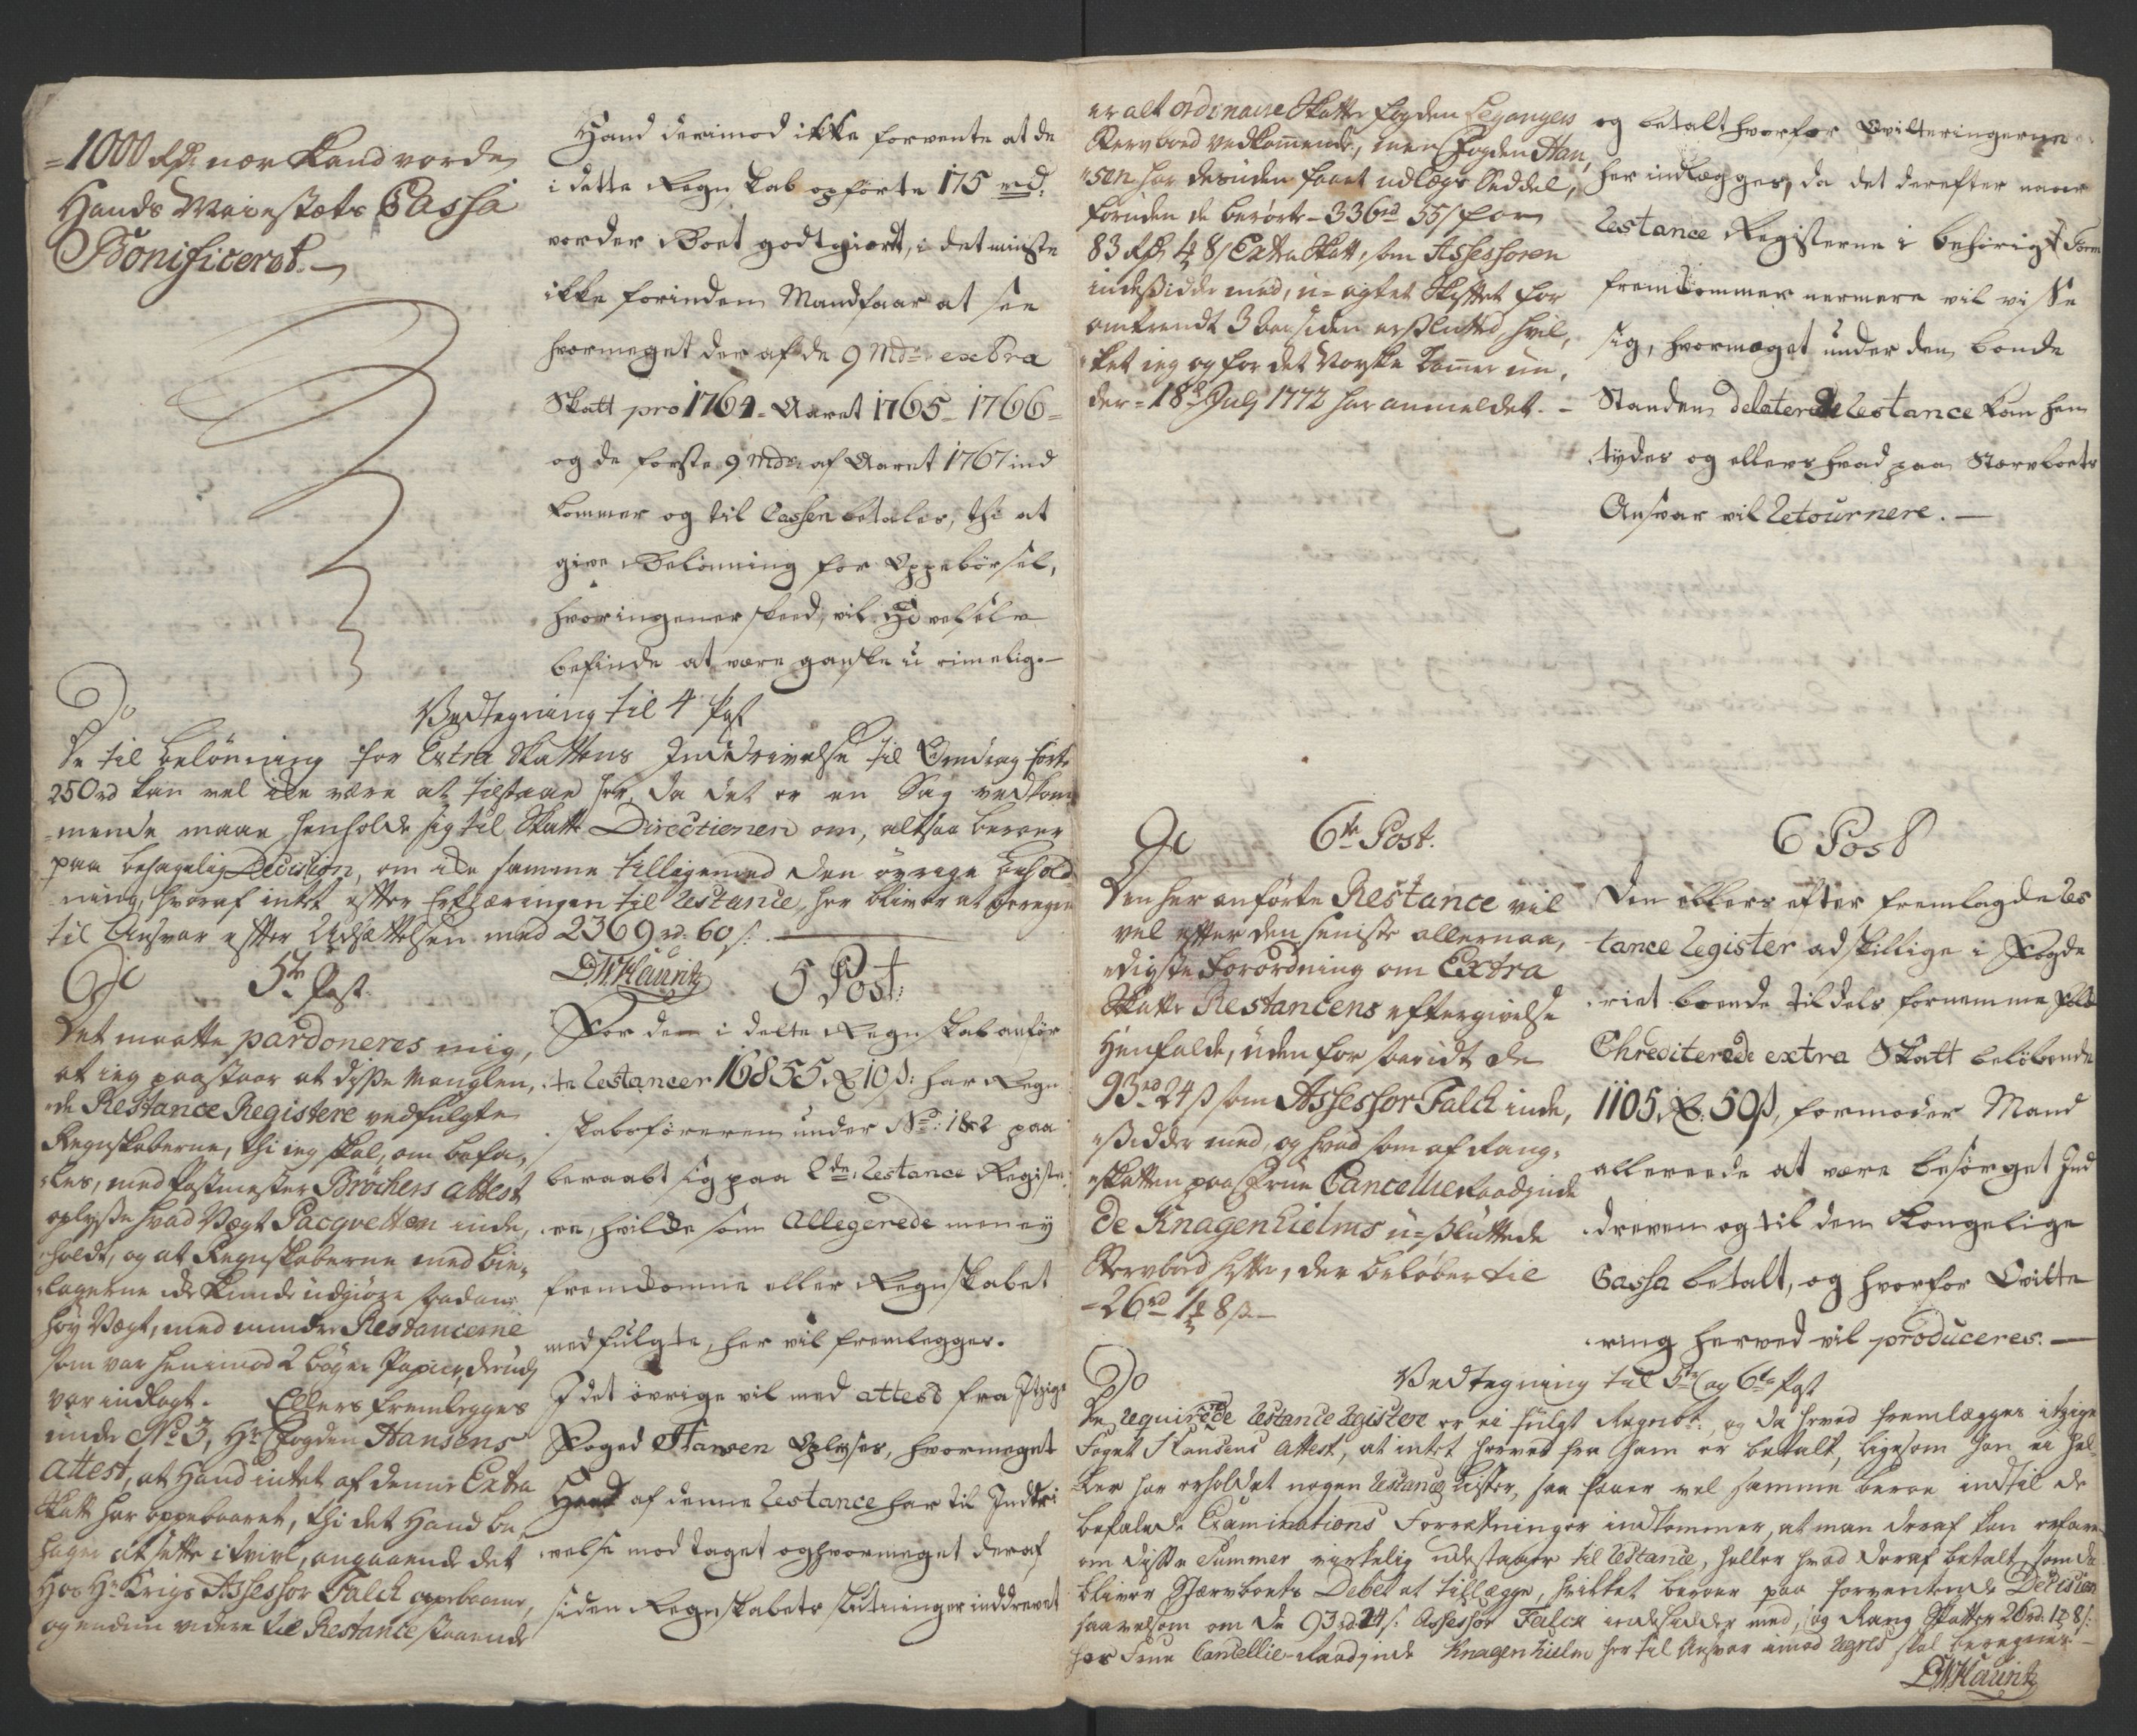 =1000 Rdr. nær Kand vorde
Hands Maiestæts Cassa
Bonificeret.
Hand derimod ikke forvente at de
i dette Regnskab opførte 175 rd:
vorder Boet godtgiordt, i det minste
ikke forinden Mand faar at see
hvormeget der af de 9 Mdr. extra
Skatt pro 1764 - Aaret 1765 - 1766 -
og de første 9 Mdr. af Aaret 1767 ind
kommer og til Cassen betales, thi at
give Belønning for Oppebørsel,
hvor ingen er skeed, vil selv
befinde at være ganske u rimelig. -
Vedtegning til 4 Post
De til belønning for Extra Skattens Inddrivelse til Omdrag førte
250 rd kan vel icke være at tilstaae her, da det er en Sag vedkom
mende maae henholde sig til Skatte Directionen om, altsaa beroer
paa behagelig Decision, om icke samme tilligemed den øvrige behold
ning, hvoraf intet efter Erklæringen til Restance, her bliver at beregne
til Ansvar efter Udsættelsen med 2369 rd. 60 s:
DWHauritz
5te Post.
Det maatte pardoneres mig,
at ieg paastaar at disse Manglen,
de Restance Registere vedfulgte
Regnskaberne, thi ieg skal, om befa,
les, med Postmester Bröchers attest
oplysse hvad Vægt Pacqvetten inde,
holdt, og at Regnskaberne med bie,
lagerne icke kunde udgiøre saadan
høy Vægt, med mindre Restancerne
som var henimod 2 bøger Papier, derudj
var indlagt. Ellers fremlegges
under No 3, Hr. Fogden Hansens
attest, at Hand intet af denne Extra
Skatt har oppebaaret, thi det Hand be,
hager at sette i tvivl, angaaende det
Hos Hr. Krigs Assessor Falch oppebaarne,
og endnu videre til Restance staaende
5 Post:
For de i dette Regnskab anfør
te Restancer 16855 Rd 10 s: har Regn
skabsføreren under No: 1 & 2 paa
beraabt sig paa 2de Restance Registe
re, hvilcke som Allegerede men ey
fremkomne eller Regnskabet
medfulgte, her vil fremlegges.
J det øvrige vil med attest fra Itzige
Foged Hansen Oplyses, hvormeget
Hand af denne Restance har til Inddri
velse modtaget og hvormeget deraf
siden Regnskabets slutninger inddrevet
er alt ordinaire Skatter Fogden Leganger
Stervboed vedkommende, men Fogden Han,
sen har desuden faaet udlægs Seddel,
foruden de berørte - 336 rd 55 s for
83 Rdr 4 8 s Extra Skatt, som Assessoren
indesidder med, u-agtet Skiftet for
omtrendt 3 Aar siden er sluttet, hvil,
ket ieg og for det Norske Cammer un,
der = 18de July 1772 har anmeldet. -
og betalt hvorfor Qvitteringerne
her indlegges, da det derefter naar
Restance Registerne i behørig Form
fremkommer nermere vil vise
sig, hvormeget under den bonde
Standen Restance kan hen
tydes og ellers hvad paa Stervboets
Ansvar vil Retournere. -
6te Post.
Den her anførte Restance vil
vel efter den seniste allernaa,
digste Forordning om Extra
Skatte Restancens eftergivelse
Henfalde, uden for saavidt de
93 rd 24 s som Assessor Falch inde,
sidder med, og hvad som af Rang,
skatten paa Frue Cancellieraadjnde
De Knagenhielms u-sluttede
Stervboed hefter, der beløber til
= 26 rd 1 8 s -
6 Post
Den ellers efter fremlagde Res
tance Register adskillige i Fogde
riet boende til dels fornemme Folk
Chrediterede extra Skatt beløbende
1105 Rd. 50 s, formoder Mand
allereede at være besørget Ind
dreven og til den Kongelige
Cassa betalt, og hvorfor Qvitte
ring herved vil produceres. -
Vedtegning til 5te og 6te Post
De requirerede Restance Registere er ei fulgt Regnsk:, og da herved fremlægges itzige
Foget Hansens Attest, at intet herved fra ham er betalt, ligesom han ei hel
ler har erholdet nogen Restance Lister, saa faaer vel samme beroe indtil de
befalede Examinations Forretninger indkommer, at man deraf kan erfare
om disse Summer virkelig udestaaer til Restance, heller hvad deraf betalt, som da
bliver Stervboets Debet at tillægge, hvilket beroer paa forventende Decision
saavelsom om de 93 rd 24 s: Assessor Falch indesidder med, og Rang Skatten 26 rd. 1 8 s:
hos Frue Cancellie-Raadjnde Knagenhielm her til Ansvar imod regres skal beregnes -
DWHauritz